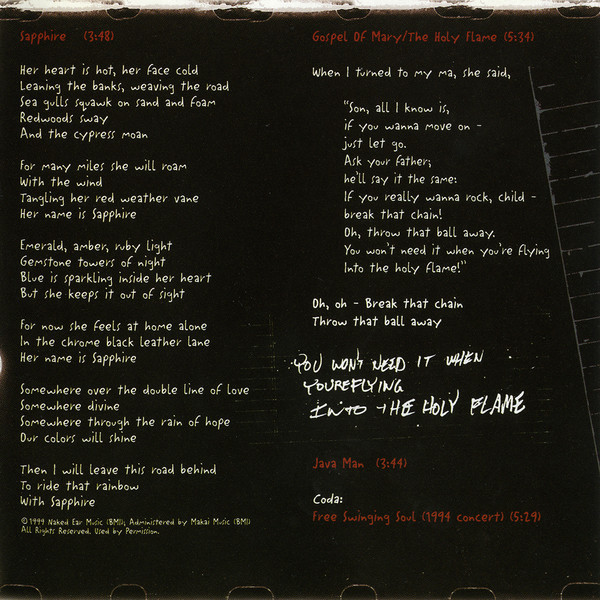 Sapphire (3:48)
Her heart is hot, her face cold
Leaning the banks, weaving the road
Sea gulls squawk on sand and foam
Redwoods sway
And the cypress moan
For many miles she will roam
With the wind
Tangling her red weather vane
Her name is Sapphire
Emerald, amber, ruby light
Gemstone towers of night
Blue is sparkling inside her heart
But she keeps it out of sight
For now she feels at home alone
In the chrome black leather lane
Her name is Sapphire
Somewhere over the double line of love
Somewhere divine
Somewhere through the rain of hope
Our colors will shine
Then I will leave this road behind
To ride that rainbow
With Sapphire
©1999 Naked Ear Music (BMI), Administered by Makai Music (BMI)
All Rights Reserved. Used by Permission.
Gospel Of Mary/The Holy Flame (5:34)
When I turned to my ma, she said,
"Son, all I know is,
if you wanna move on -
just let go.
Ask your father;
he'll say it the same:
If you really wanna rock, child -
break that chain!
Oh, throw that ball away.
You won't need it when you're flying
Into the holy flame!"
Oh, oh - Break that chain
Throw that ball away
YOU WON'T NEED IT WHEN
YOUREFLYING
INTO THE HOLY FLAME
Java Man (3:44)
Coda:
Free Swinging Soul (1994 concert) (5:29)